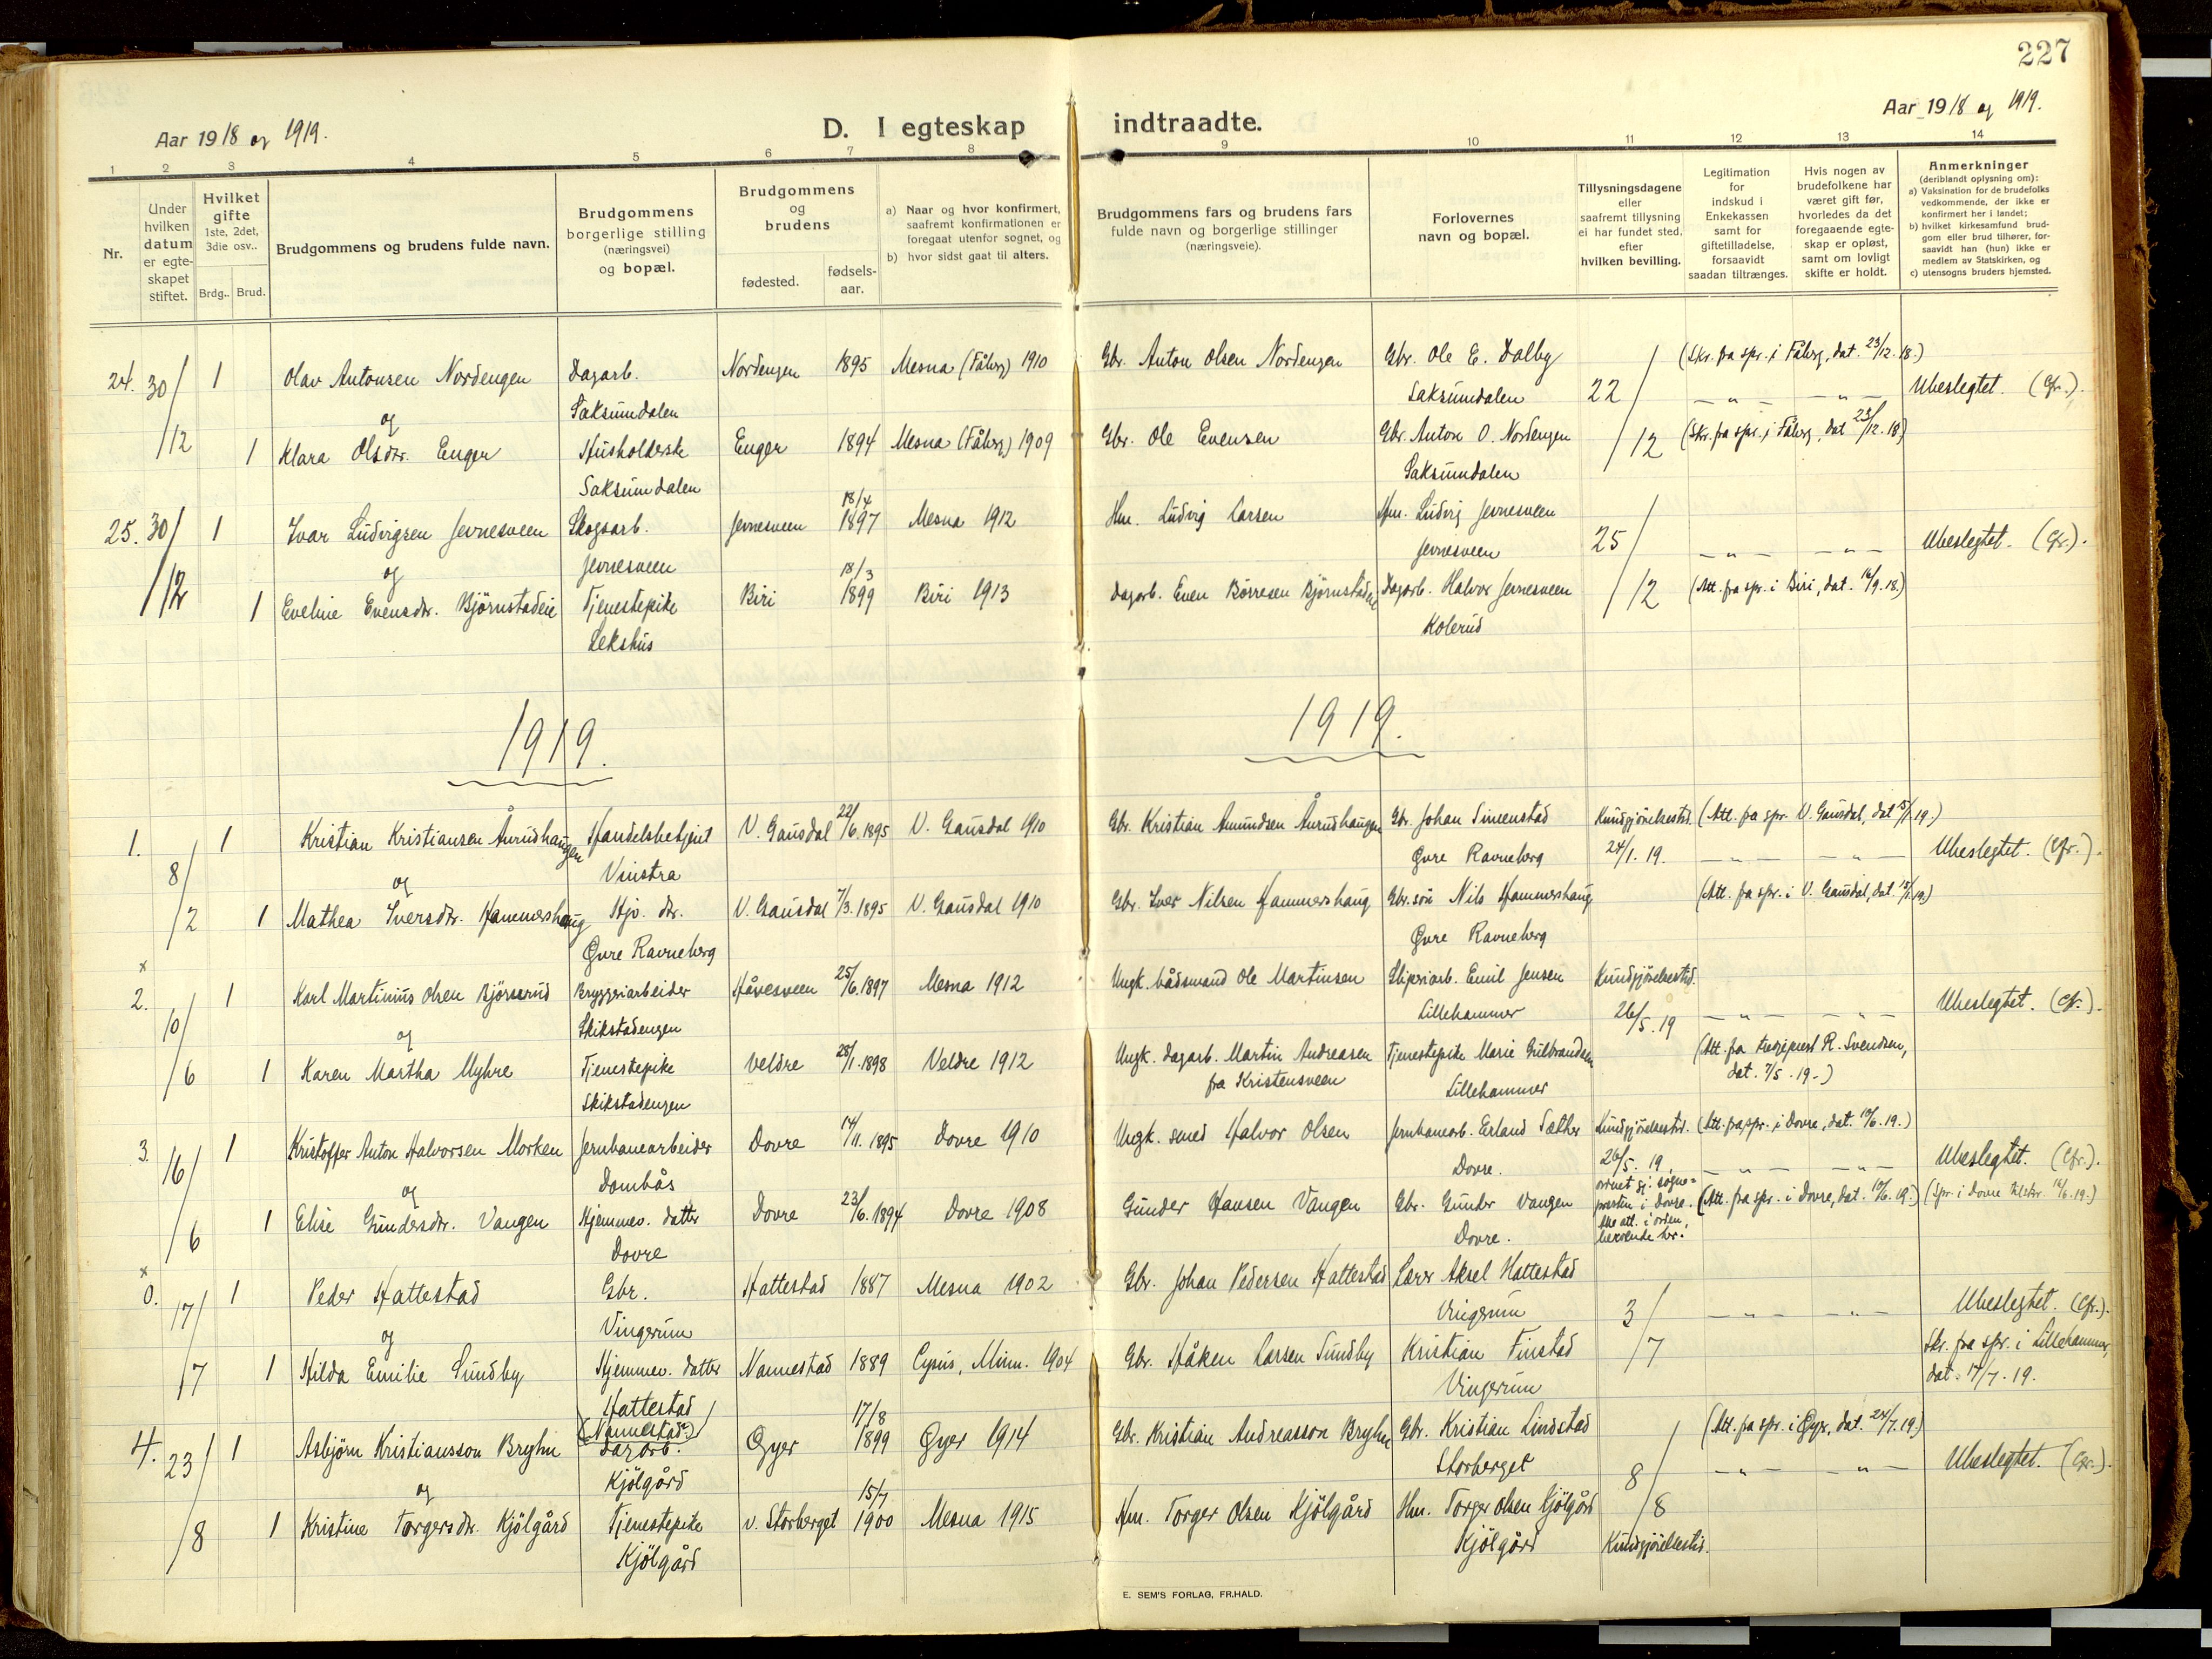 227
Aar 1918 og 1919.
D. I egteskap indtraadte.
Aar 1918 og 1919.
1 2 3 4 5 6 7 8 9 10 11 12 13 14
Nr.
Under hvilken datum er egteskapet stiftet.
Hvilket gifte 1ste, 2det, 3die osv..
Brdg.. Brud.
Brudgommens og brudens fulde navn.
Brudgommens borgerlige stilling (næringsvei) og bopæl.
Brudgommens og brudens
fødested.
fødselsaar.
a) Naar og hvor konfirmert, saafremt konfirmationen er foregaat utenfor sognet, og
b) hvor sidst gaat til alters.
Brudgommens fars og brudens fars fulde navn og borgerlige stillinger (næringsveie).
Forlovernes navn og bopæl.
Tillysningsdagene eller saafremt tillysning ei har fundet sted, efter hvilken bevilling.
Legitimation for indskud i Enkekassen samt for giftetilladelse, forsaavidt saadan tiltrænges.
Hvis nogen av brudefolkene har været gift før, hvorledes da det foregaaende egteskap er opløst, samt om lovligt skifte er holdt.
Anmerkninger (deriblandt oplysning om):
a) Vaksination for de brudefolks vedkommende, der ikke er konfirmert her i landet;
b) hvilket kirkesamfund brudgom eller brud tilhører, forsaavidt han (hun) ikke er medlem av Statskirken, og
c) utensogns bruders hjemsted.
24. 30/12 1 Olav Antonsen Nordengen Dagarb. Saksumdalen Nordengen 1895 Mesna (Fåbrg) 1910 Gbr. Anton Olsen Nordengen Gbr. Ole E. Dalby Saksumdalen 22/12 (Skr. fra spr. i Fåbrg, dat. 23/12.18.) — " — — " — Ubeslegtet. (Cfr.).
og
1 Klara Olsdtr. Enger Husholderske Saksumdalen Enger 1894 Mesna (Fåbrg) 1909 Gbr. Ole Evensen Gbr. Anton O. Nordengen Saksumdalen (Skr. fra spr. i Fåbrg, dat 23/12.18.)
25. 30/12 1 Ivar Ludvigsen Jevnesveen Skogsarb. Jevnesveen Jevnesveen 18/4 1897 Mesna 1912 Hm. Ludvig Larsen Hm. Ludvig Jevnesveen Jevnesveen 25/12 — " — — " — Ubeslegtet. (Cfr.).
og
1 Eveline Evensdtr. Bjørnstadeie Tjenestepike Lekshus Biri 18/3 1899 Biri 1913 Dagarb. Even Børresen Bjørnstadeie Dagarb. Halvor Jevnesveen Kolerud (Att. fra spr. i Biri, dat. 16/9.18.)
1919. 1919.
1. 8/2 1 Kristian Kristiansen Åurudshaugen Handelsbetjent Vinstra V. Gausdal 22/6.1895 V. Gausdal 1910 Gbr. Kristian Amundsen Åurudshaugen Gbr. Johan Simenstad Øvre Ravneberg Kundgjörelsestid. 24/1. 19. (Att. fra spr. V. Gausdal, dat 15/1.19.) — " — — " — Ubeslegtet. (Cfr.).
og
1 Mathea Iversdtr. Hammershaug Hjv. dtr. Øvre Ravneberg V. Gausdal 7/3.1895 V. Gausdal 1910 Gbr. Iver Nilsen Hammershaug Gbr.sön Nils Hammershaug Øvre Ravneberg (Att. fra spr. i V. Gausdal, dat. 15/1.19.)
x
2. 10/6 1 Karl Martinius Olsen Björserud Bryggeriarbeider Skikstadengen Håvesveen 25/6.1897 Mesna 1912 Ungk. bådsmand Ole Martinsen Sliperiarb. Emil Jensen Lillehammer Kundgjörelsestid. 26/5.19 — " — — " — Ubeslegtet. (Cfr.).
og
1 Karen Martha Myhre Tjenestepike Skikstadengen Veldre 28/1.1898 Veldre 1912 Ungk. dagarb. Martin Andreasen fra Kristensveen Tjenestepike Marie Gulbrandsen Lillehammer (Att. fra R. Svendsen, dat. 7/5.19.)
3. 16/6 1 Kristoffer Anton Halvorsen Morken Jernbanearbeider Dombås Dovre 14/11.1895 Dovre 1910 Ungk. smed Halvor Olsen Jernbanearb. Erland Sæther Dovre. Kundgjörelsestid. 26/5.19. (Att. fra spr. i Dovre, dat. 10/6.19.) — " — — " — Ubeslegtet. (Cfr.).
og
1 Elise Gundersdtr. Vangen Hjemmev. datter Dovre Dovre 23/6.1894 Dovre 1908 Gunder Hansen Vangen Gbr. Gunder Vangen Dovre. ordnet gj. sogneprsten i Dovre. att. i orden, beroende her. (Att. fra spr. i Dovre, dat. 10/6.19.) (Spr. i Dovre tilskr. 14/6.19.)
x
0. 17/7 1 Peder Hattestad Gbr. Vingerum Hattestad 1887 Mesna 1902 Gbr. Johan Pedersen Hattestad Lærer Aksel Hattestad Vingerum 3/7 — " — — " — Ubeslegtet. (Cfr.).
og
1 Hilda Emilie Sundby Hjemmev. datter Hattestad (Nannestad?) Nannestad 1889 Cyrus, Minn. 1904 Gbr. Håken Larsen Sundby Kristian Finstad Vingerum Skr. fra spr. i Lillehammer, dat. 17/7.19.
4. 23/8 1 Asbjörn Kristiansson Bryhn Dagarb. Kjölgård Øyer 17/8 1899 Øyer 1914 Gbr. Kristian Andreasson Bryhn Gbr. Kristian Lindstad Storberget 8/8 (Att. fra spr. i Øyr, dat. 24/7.19.) — " — — " — Ubeslegtet. (Cfr.).
og
1 Kristine Torgersdtr. Kjölgård Tjenestepike Kjölgård v. Storberget 15/7 1900 Mesna 1915 Hm. Torger Olsen Kjölgård Hm. Torger Olsen Kjölgård Kjölgård Kundgjörelsestid.
E. SEM'S FORLAG, FR.HALD.